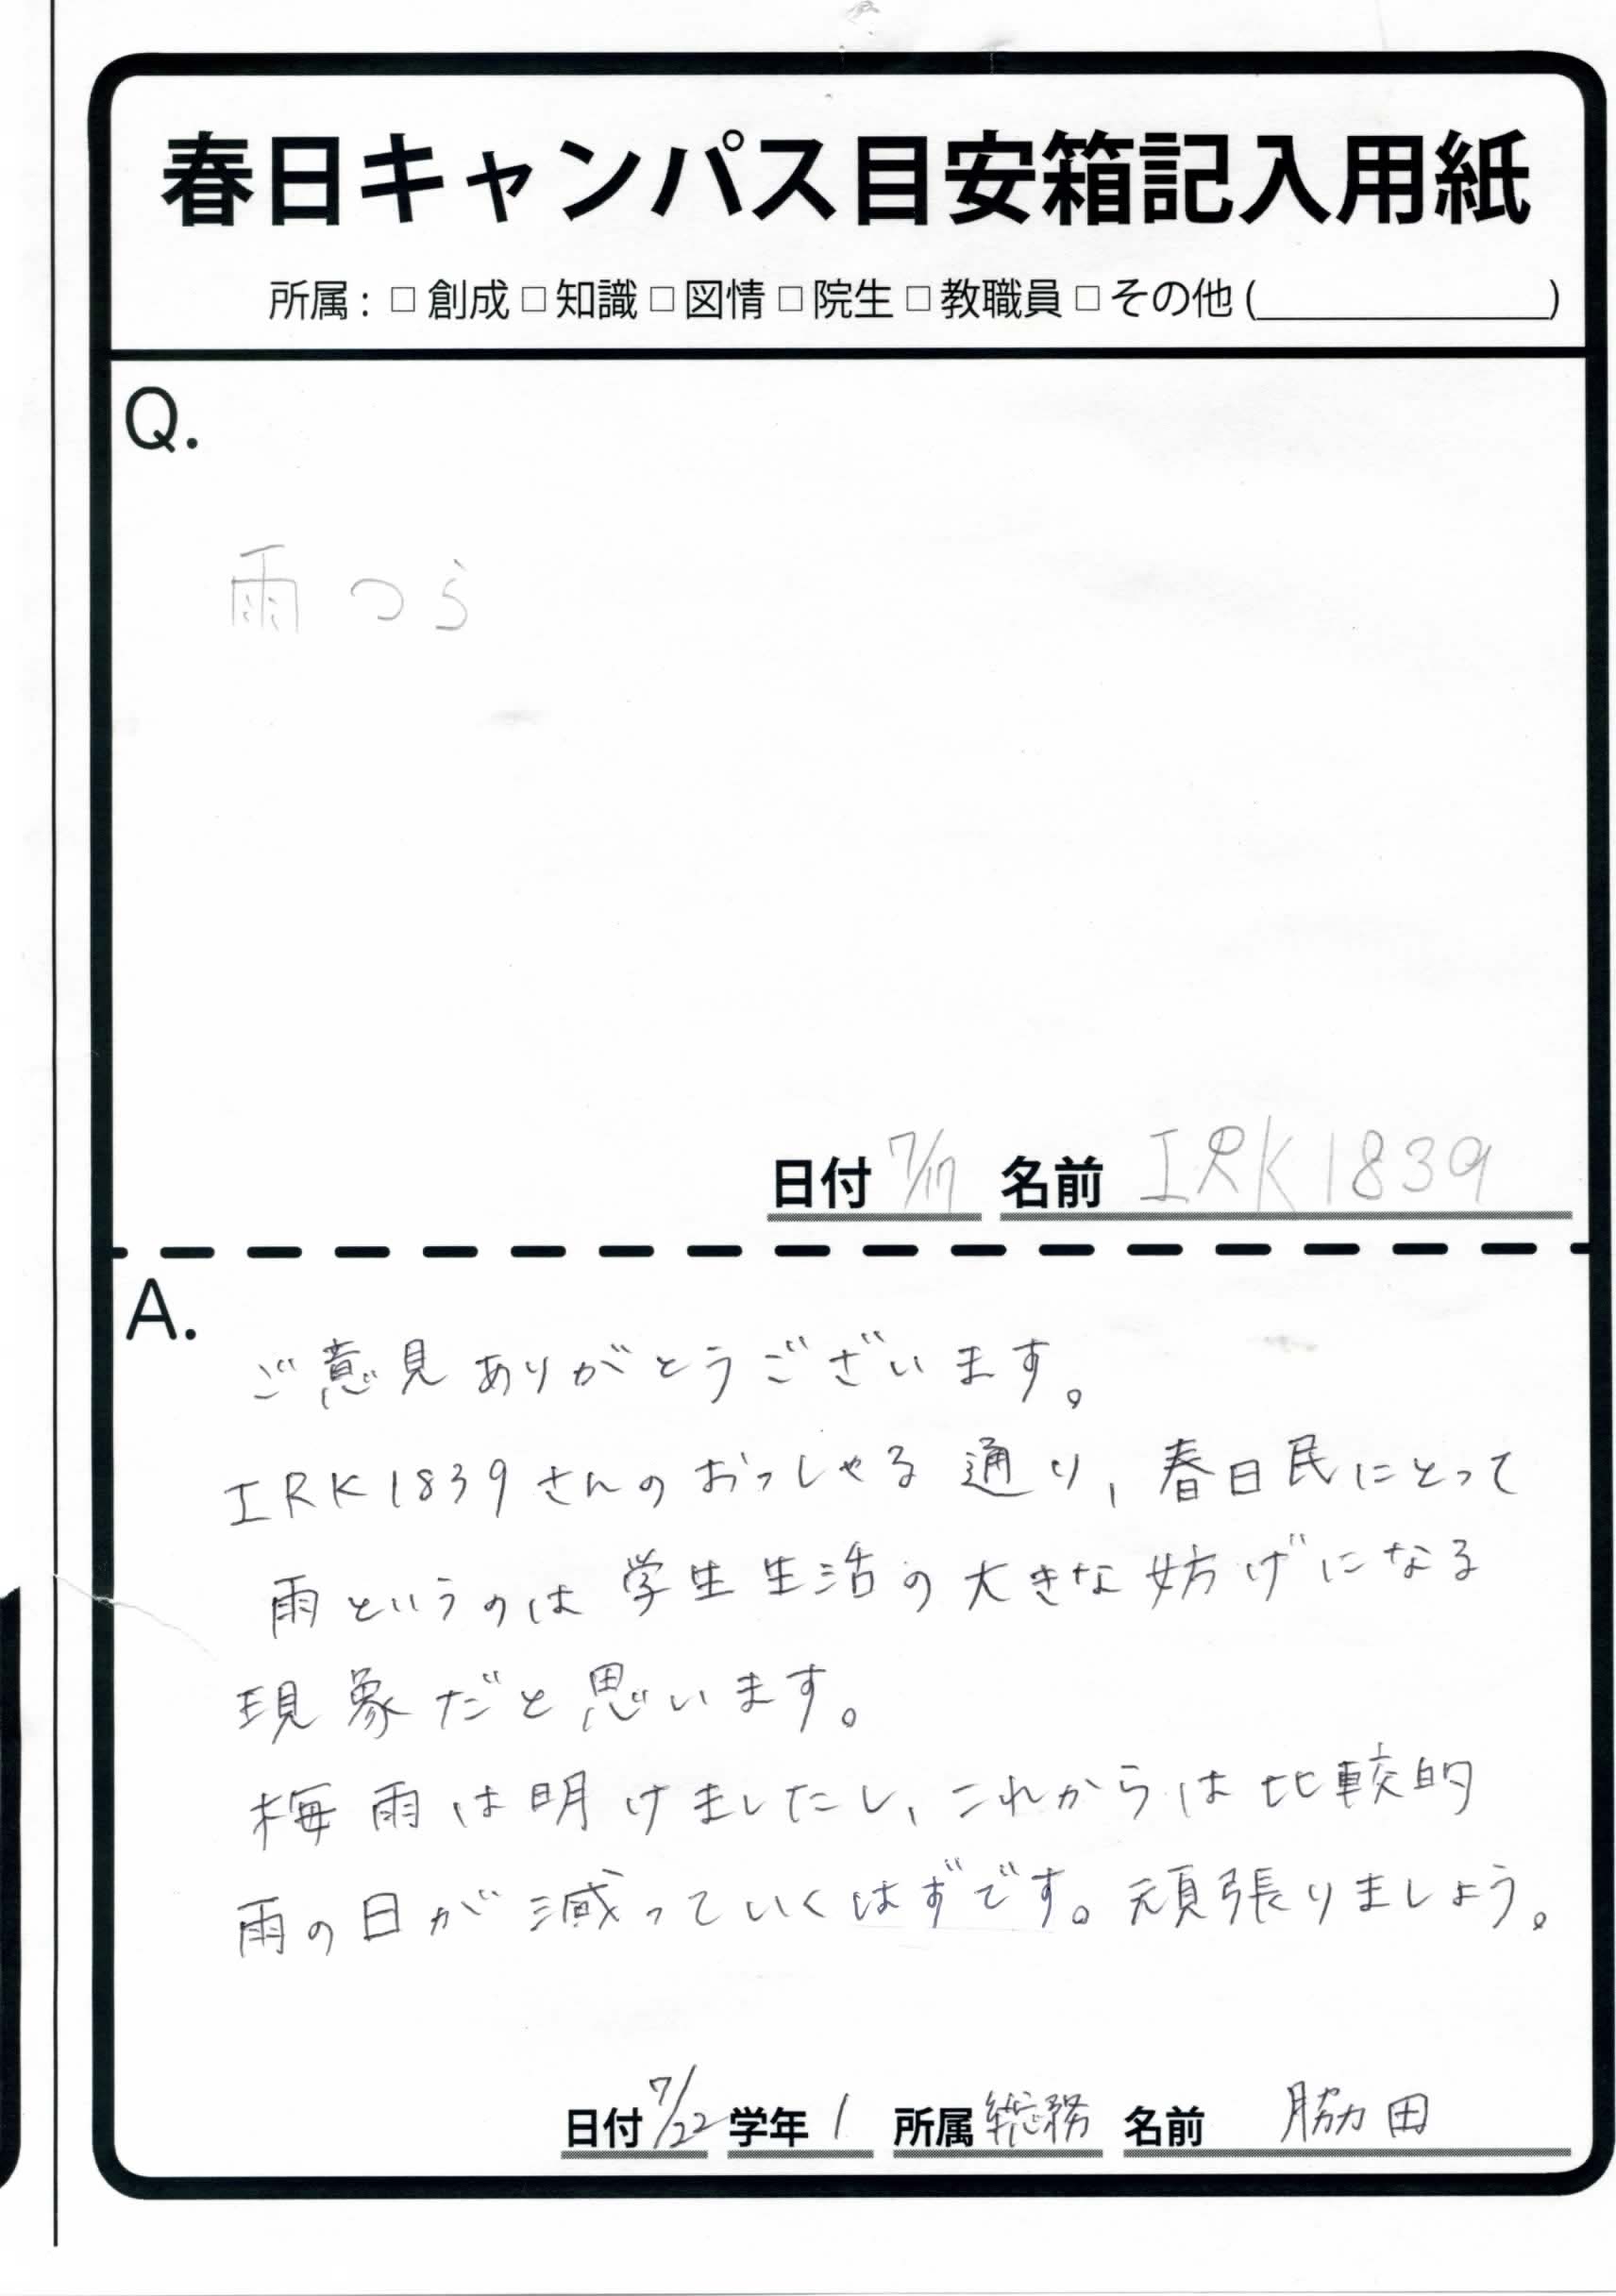 春日キャンパス目安箱記入用紙
所属：□ 創成 □ 知識 □ 図情 □ 院生 □ 教職員 □ その他 (＿＿＿＿＿＿＿)
Q.
雨つら
日付 7/17 名前 IRK1839
A.
ご意見ありがとうございます。
IRK1839さんのおっしゃる通り，春日民にとって
雨というのは学生生活の大きな妨げになる
現象だと思います。
梅雨は明けましたし，これからは比較的
雨の日が減っていくはずです。頑張りましょう。
日付 7/22 学年 1 所属 総務 名前 脇田